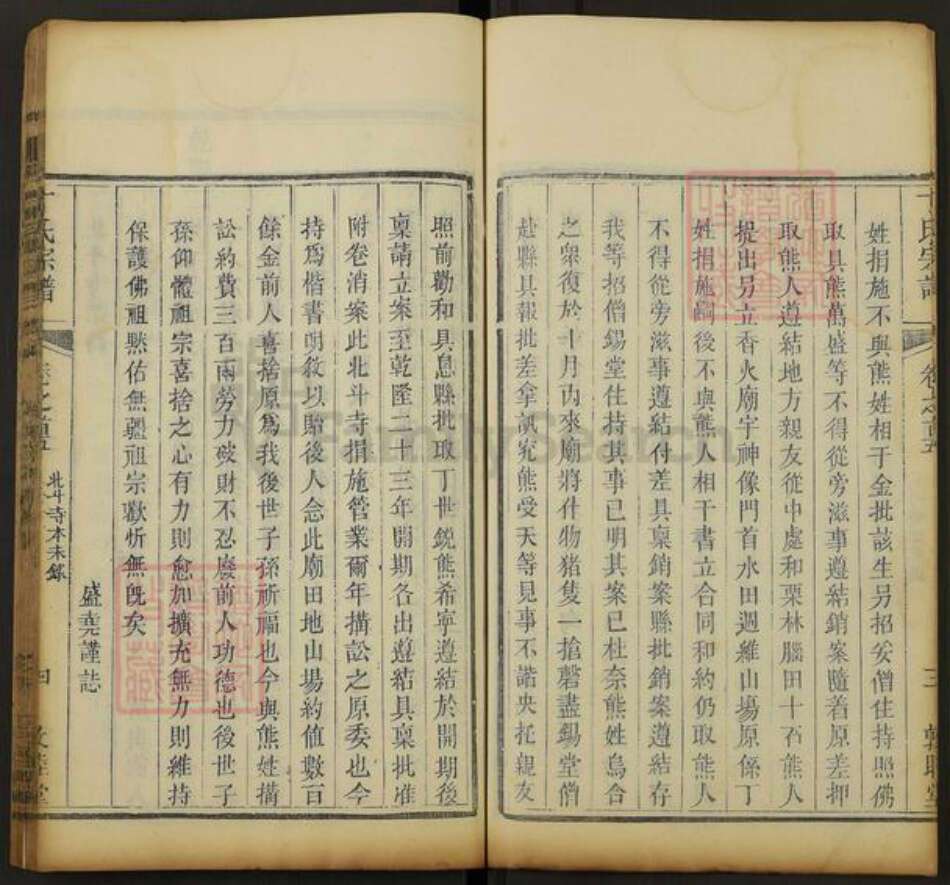 姓捐施不與熊姓相干金批該生另招妥僧住持照佛
取具熊萬盛等不得從旁滋事遵結銷案隨着原差押
取熊人遵結地方親友從中處和栗林腦田十石熊人
提出另立香火廟宇神像門首水田週維山場原係丁
姓捐施嗣後不與熊人相干書立合同和約仍取熊人
不得從旁滋事遵結付差具稟銷案縣批銷案遵結存
我等招僧錫堂住持其事已明其案已杜奈熊姓烏合
之衆復於十月內來廟將什物猪隻一搶磬盡錫堂僧
赴縣具報批差拿訊究熊受天等見事不諧央托親友
照前勸和具息縣批取丁世銳熊希寧遵結於開期後
稟請立案至乾隆二十三年開期各出遵結具稟批准
附卷消案此北斗寺捐施管業爾年搆訟之原委也今
持爲楷書明敘以貽後人念此廟田地山場約值數百
餘金前人喜捨原爲我後世子孫祈福也今與熊姓搆
訟約費三百兩勞力破財不忍廢前人功德也後世子
孫仰體祖宗喜捨之心有力則愈加擴充無力則維持
保護佛祖黙佑無疆祖宗歡忻無旣矣
盛堯謹誌
氏宗譜
卷之首五
北斗寺本末錄
四
敦睦堂